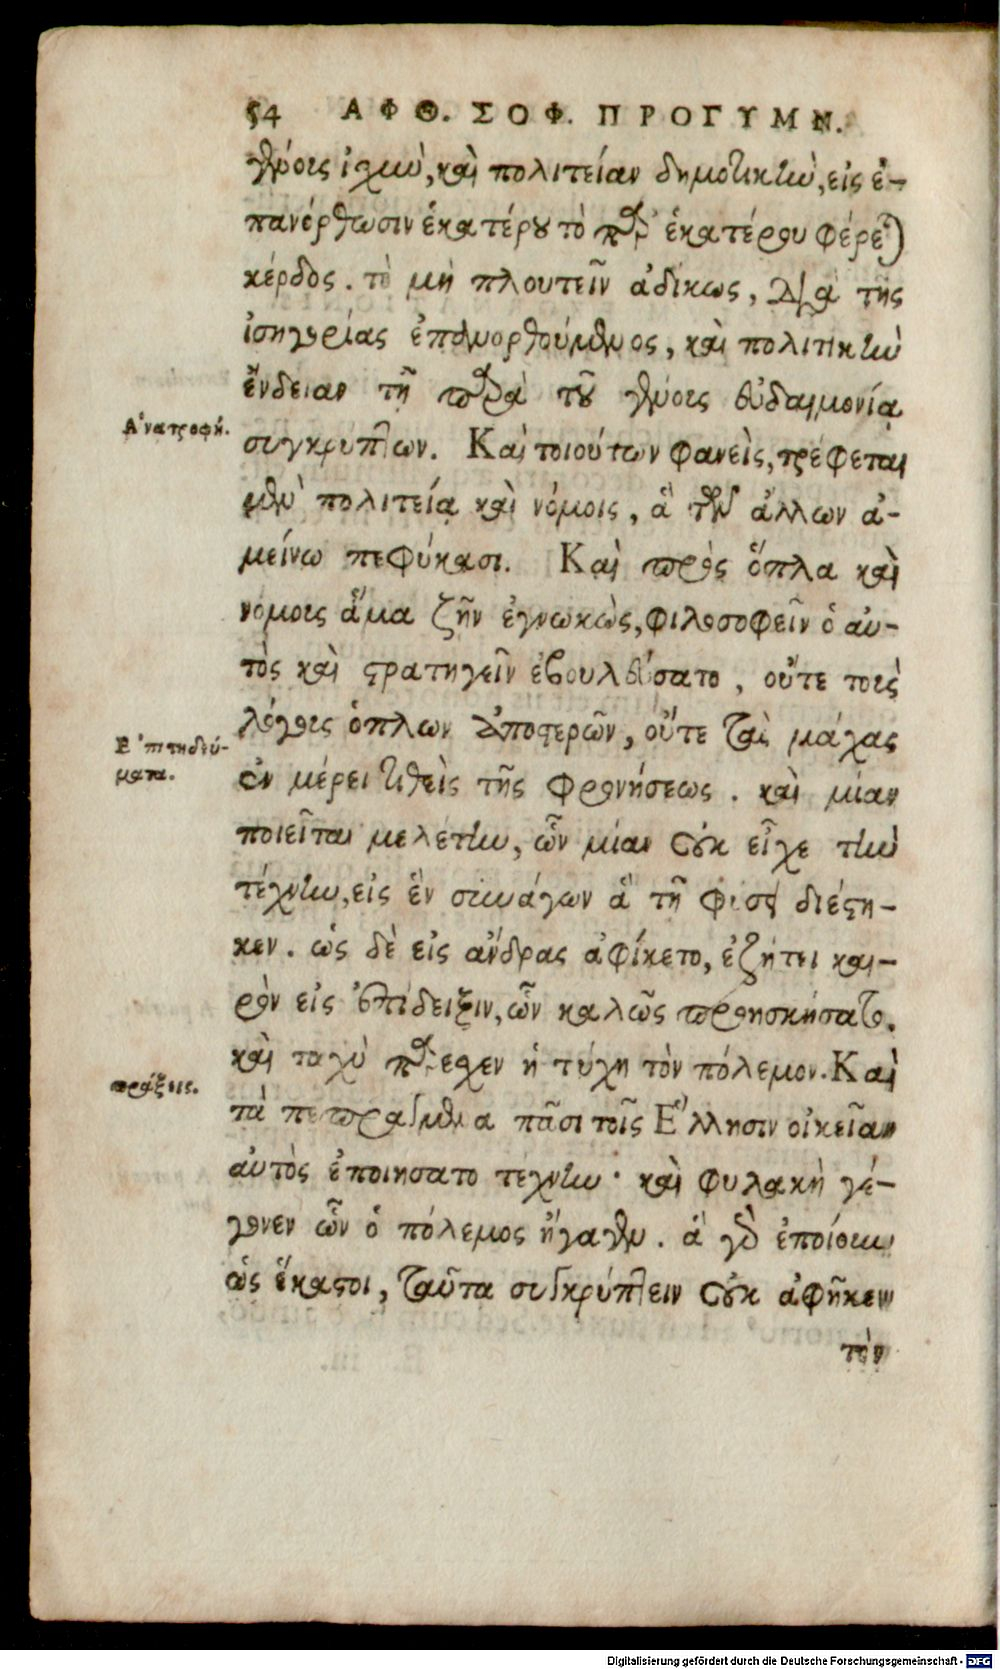 54 ΑΦΘ. ΣΟΦ. ΠΡΟΓΥΜΝ.
γένοις ἰσχὺν, καὶ πολιτείαν δημοτικὴν, εἰς ἐ-
πανόρθωσιν ἑκατέρου τὸ παρ' ἑκατέρου φέρεται
κέρδος. τὸ μὴ πλουτεῖν ἀδίκως, διὰ τῆς
ἰσηγορίας ἐπανορθούμενος, καὶ πολιτικὴν
ἔνδειαν τῇ παρὰ τοῦ γένοις εὐδαιμονίᾳ
Ἀνατροφή.
συγκρύπτων. Καὶ τοιούτων φανεὶς, τρέφεται
μὲν πολιτείᾳ καὶ νόμοις, ἃ τῶν ἄλλων ἀ-
μείνω πεφύκασι. Καὶ πρὸς ὅπλα καὶ
νόμοις ἅμα ζῆν ἐγνωκὼς, φιλοσοφεῖν ὁ αὐ-
τὸς καὶ στρατηγεῖν ἐβουλεύσατο, οὔτε τοὶς
λόγοις ὅπλων ἀποστερῶν, οὔτε ταὶ μάχας
Ἐπιτηδεύ-
ματα.
ἐν μέρει τιθεὶς τῆς φρονήσεως. καὶ μίαν
ποιεῖται μελέτην, ὧν μίαν οὐκ εἶχε τὴν
τέχνην, εἰς ἓν συνάγων ἃ τῇ φύσει διέστη-
κεν. ὡς δὲ εἰς ἄνδρας ἀφίκετο, ἐζήτει και-
ρὸν εἰς ἐπίδειξιν, ὧν καλῶς προησκήσατο.
καὶ ταχὺ παρέσχεν ἡ τύχη τὸν πόλεμον. Καὶ
πράξεις.
τὰ πεπραγμένα πᾶσι τοῖς Ἕλλησιν οἰκεῖαν
αὐτὸς ἐποιήσατο τέχνην· καὶ φυλακὴ γέ-
γονεν ὧν ὁ πόλεμος ἤγαγεν. ἃ γὰρ ἐποίουν
ὡς ἕκαστοι, ταῦτα συγκρύπτειν οὐκ ἀφῆκεν
τὸν
Digitalisierung gefördert durch die Deutsche Forschungsgemeinschaft - DFG